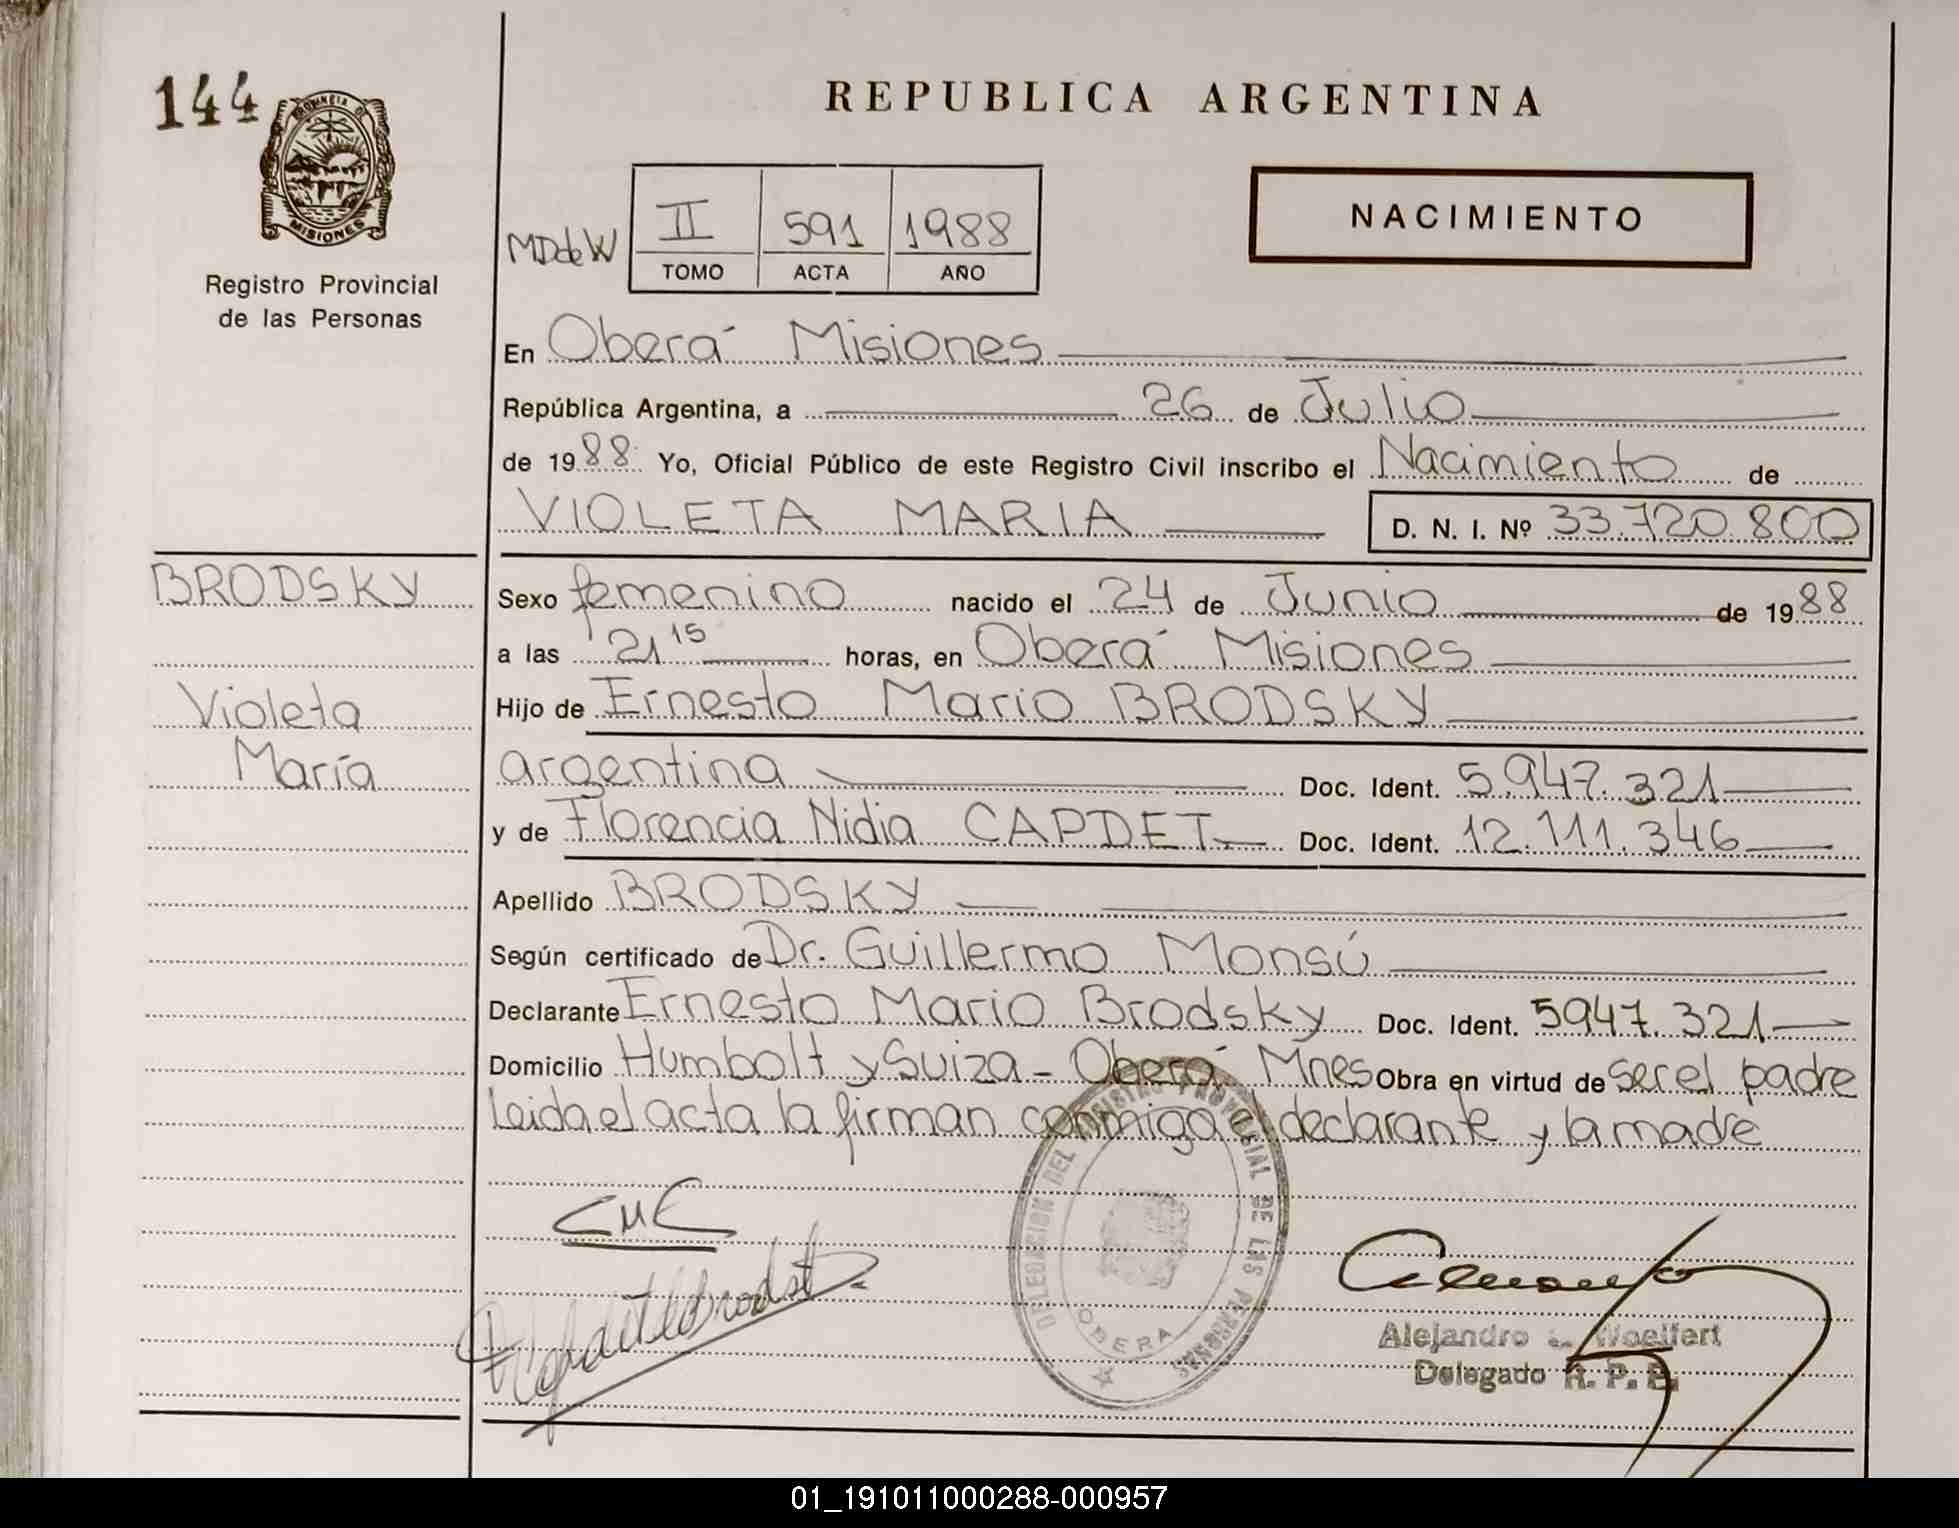 144
PROVINCIA DE
MISIONES
Registro Provincial
de las Personas
REPUBLICA ARGENTINA
MDdeW
II 591 1988
TOMO ACTA AÑO
NACIMIENTO
En Oberá Misiones
República Argentina, a 26 de Julio
de 1988. Yo, Oficial Público de este Registro Civil inscribo el Nacimiento de
VIOLETA MARIA D. N. I. Nº 33.720.800
BRODSKY
Violeta
María
Sexo femenino nacido el 24 de Junio de 1988
a las 21 15 horas, en Oberá Misiones
Hijo de Ernesto Mario BRODSKY
argentina Doc. Ident. 5.947.321
y de Florencia Nidia CAPDET Doc. Ident. 12.111.346
Apellido BRODSKY
Según certificado de Dr. Guillermo Monsú
Declarante Ernesto Mario Brodsky Doc. Ident. 5947.321
Domicilio Humbolt y Suiza - Oberá Mnes Obra en virtud de ser el padre
Leida el acta la firman conmigo el declarante y la madre
DELEGACION DEL REGISTRO PROVINCIAL DE LAS PERSONAS
OBERA
Alejandro Woelfert
Delegado R. P. P.
01_191011000288-000957